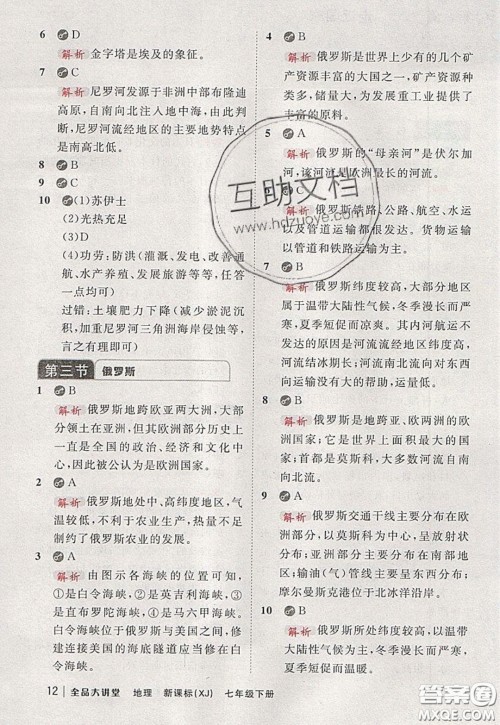 6 D
解析 金字塔是埃及的象征。
7 C
解析 尼罗河发源于非洲中部布隆迪
高原，自南向北注入地中海，由此
判断，尼罗河流经地区的地势特点
是南高北低。
8 B
9 C
10 (1)苏伊士
(2)光热充足
(3)D
(4)功劳：防洪（灌溉、发电、改善通
航、水产养殖、发展旅游等，任答
一点均可）
过错：土壤肥力下降（减少淤泥沉
积，加重尼罗河三角洲海岸侵蚀等，
言之有理即可）
第三节 俄罗斯
1 B
解析 俄罗斯地跨欧亚两大洲，大部
分领土在亚洲，但其欧洲部分历史
上一直是全国的政治、经济和文化中
心，因此被公认为是欧洲国家。
2 A
解析 俄罗斯地处中、高纬度地区，
气温较低，不利于农业生产，热量不足
制约了俄罗斯农业的发展。
3 A
解析 由图示各海峡的位置可知，
①是白令海峡，②是英吉利海峡，③
是直布罗陀海峡，④是马六甲海峡。
白令海峡位于俄罗斯与美国之间，修
建连接美国的海底隧道应在白令海
峡施工。
12 全品大讲堂 地理 新课标(XJ) 七年级下册
4 B
解析 俄罗斯是世界上少有的几个矿
产资源丰富的大国之一，矿产资源
种类多，储量大，为重工业提供了
丰富的原料。
5 A
解析 俄罗斯的“母亲河”是伏尔加
河，该河流是欧洲最长的河流。
B
解析 俄罗斯铁路、公路、航空、水运
以及管道运输都很发达，货物运输
以管道和铁路运输为主。
7 B
解析 俄罗斯纬度较高，大部分地区
属于温带大陆性气候，冬季漫长而
严寒，夏季短促而凉爽。其内河航运不
发达的原因主要是俄罗斯纬度高，
河流结冰期长；与地广人稀、温带
大陆性气候、冬季漫长而严寒、
夏季短促而凉爽、大部分河流自南
向北流。
8 B
解析 俄罗斯是地跨亚、欧两大洲的
欧洲国家；
9 A
解析 俄罗斯交通干线主要分布在欧
洲部分，以莫斯科为中心，呈放射状
分布；
10 B
互助文档
www.hdzuoye.com
答案圈
MXQE.COM